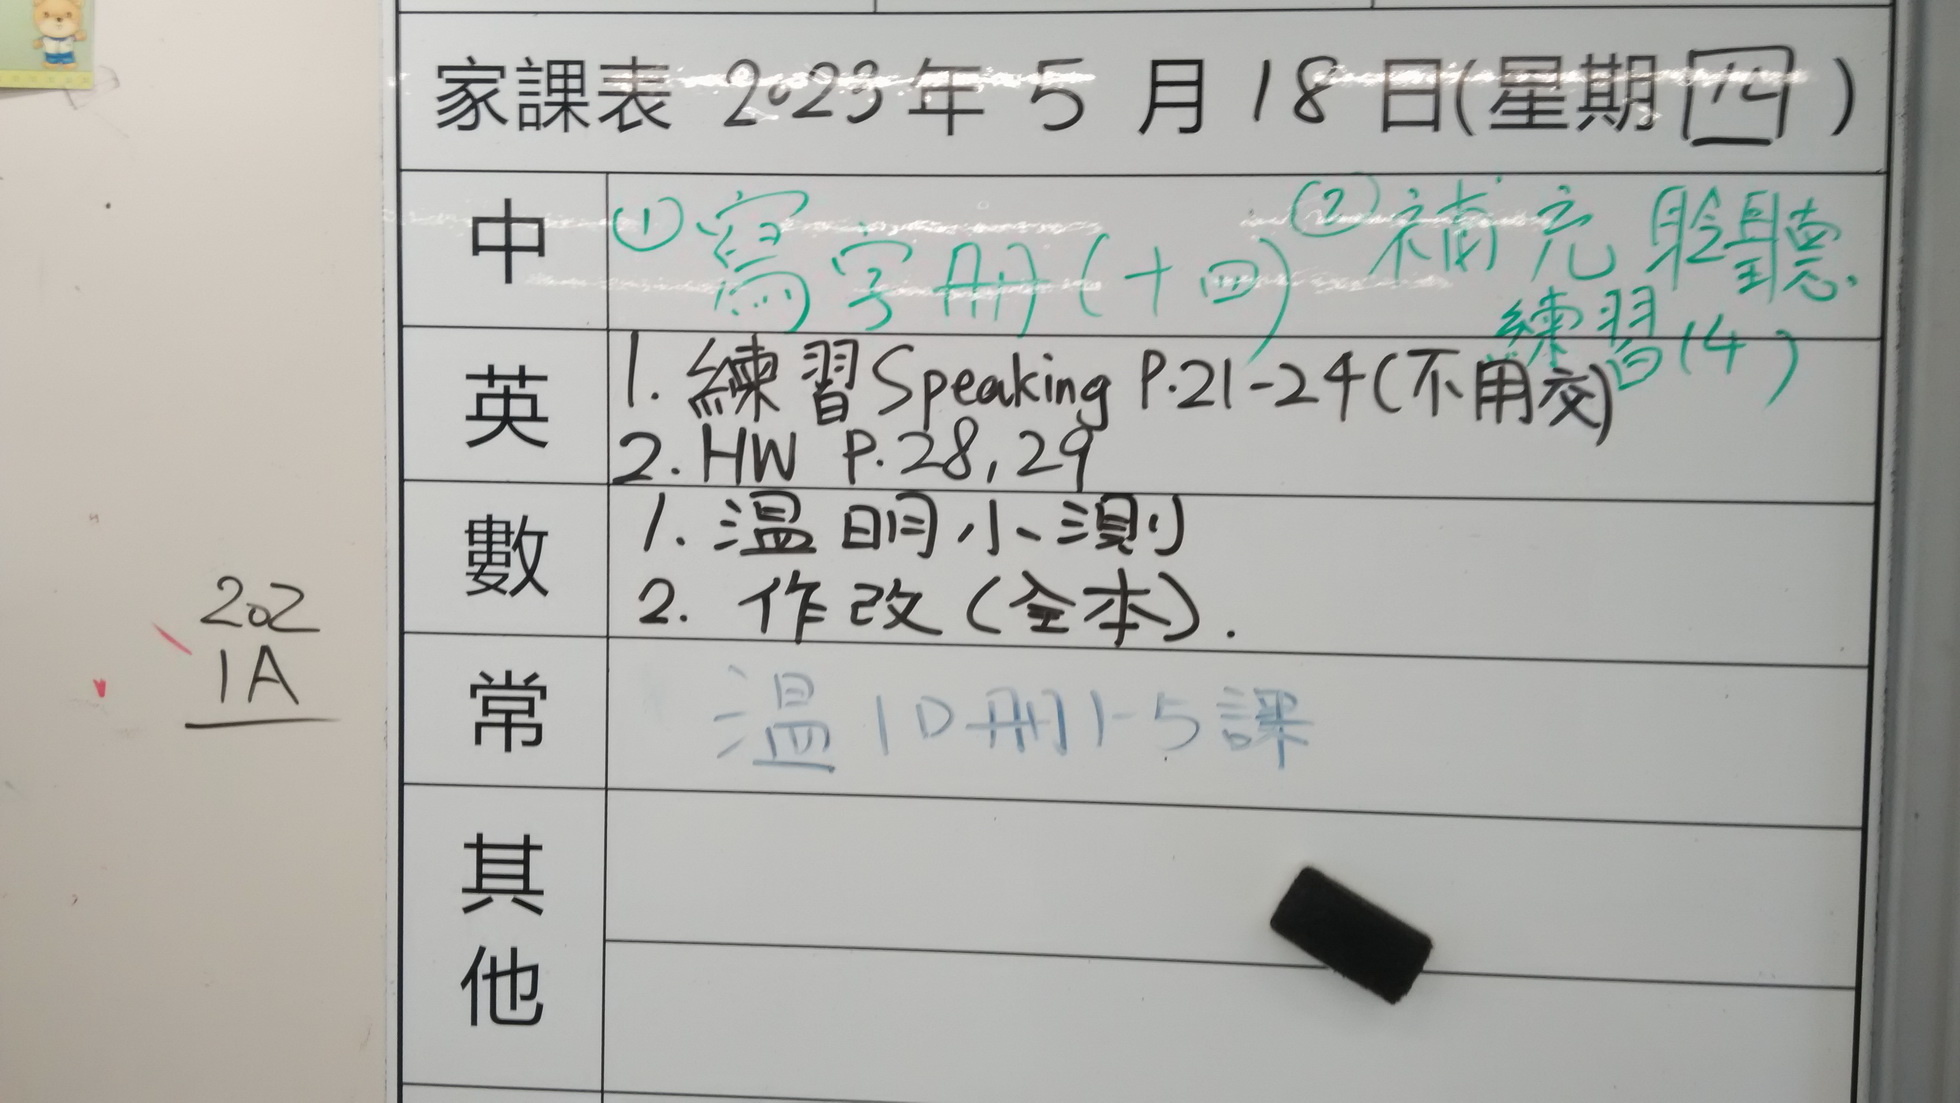 家課表 2023年 5 月 18 日(星期四)
中
①寫字冊(十四) ②補充聆聽
練習(4)
英
1. 練習Speaking P.21-24(不用交)
2. HW P.28, 29
數
1. 溫明小測
2. 作改(全本).
常
溫1D冊1-5課
其他
202
1A